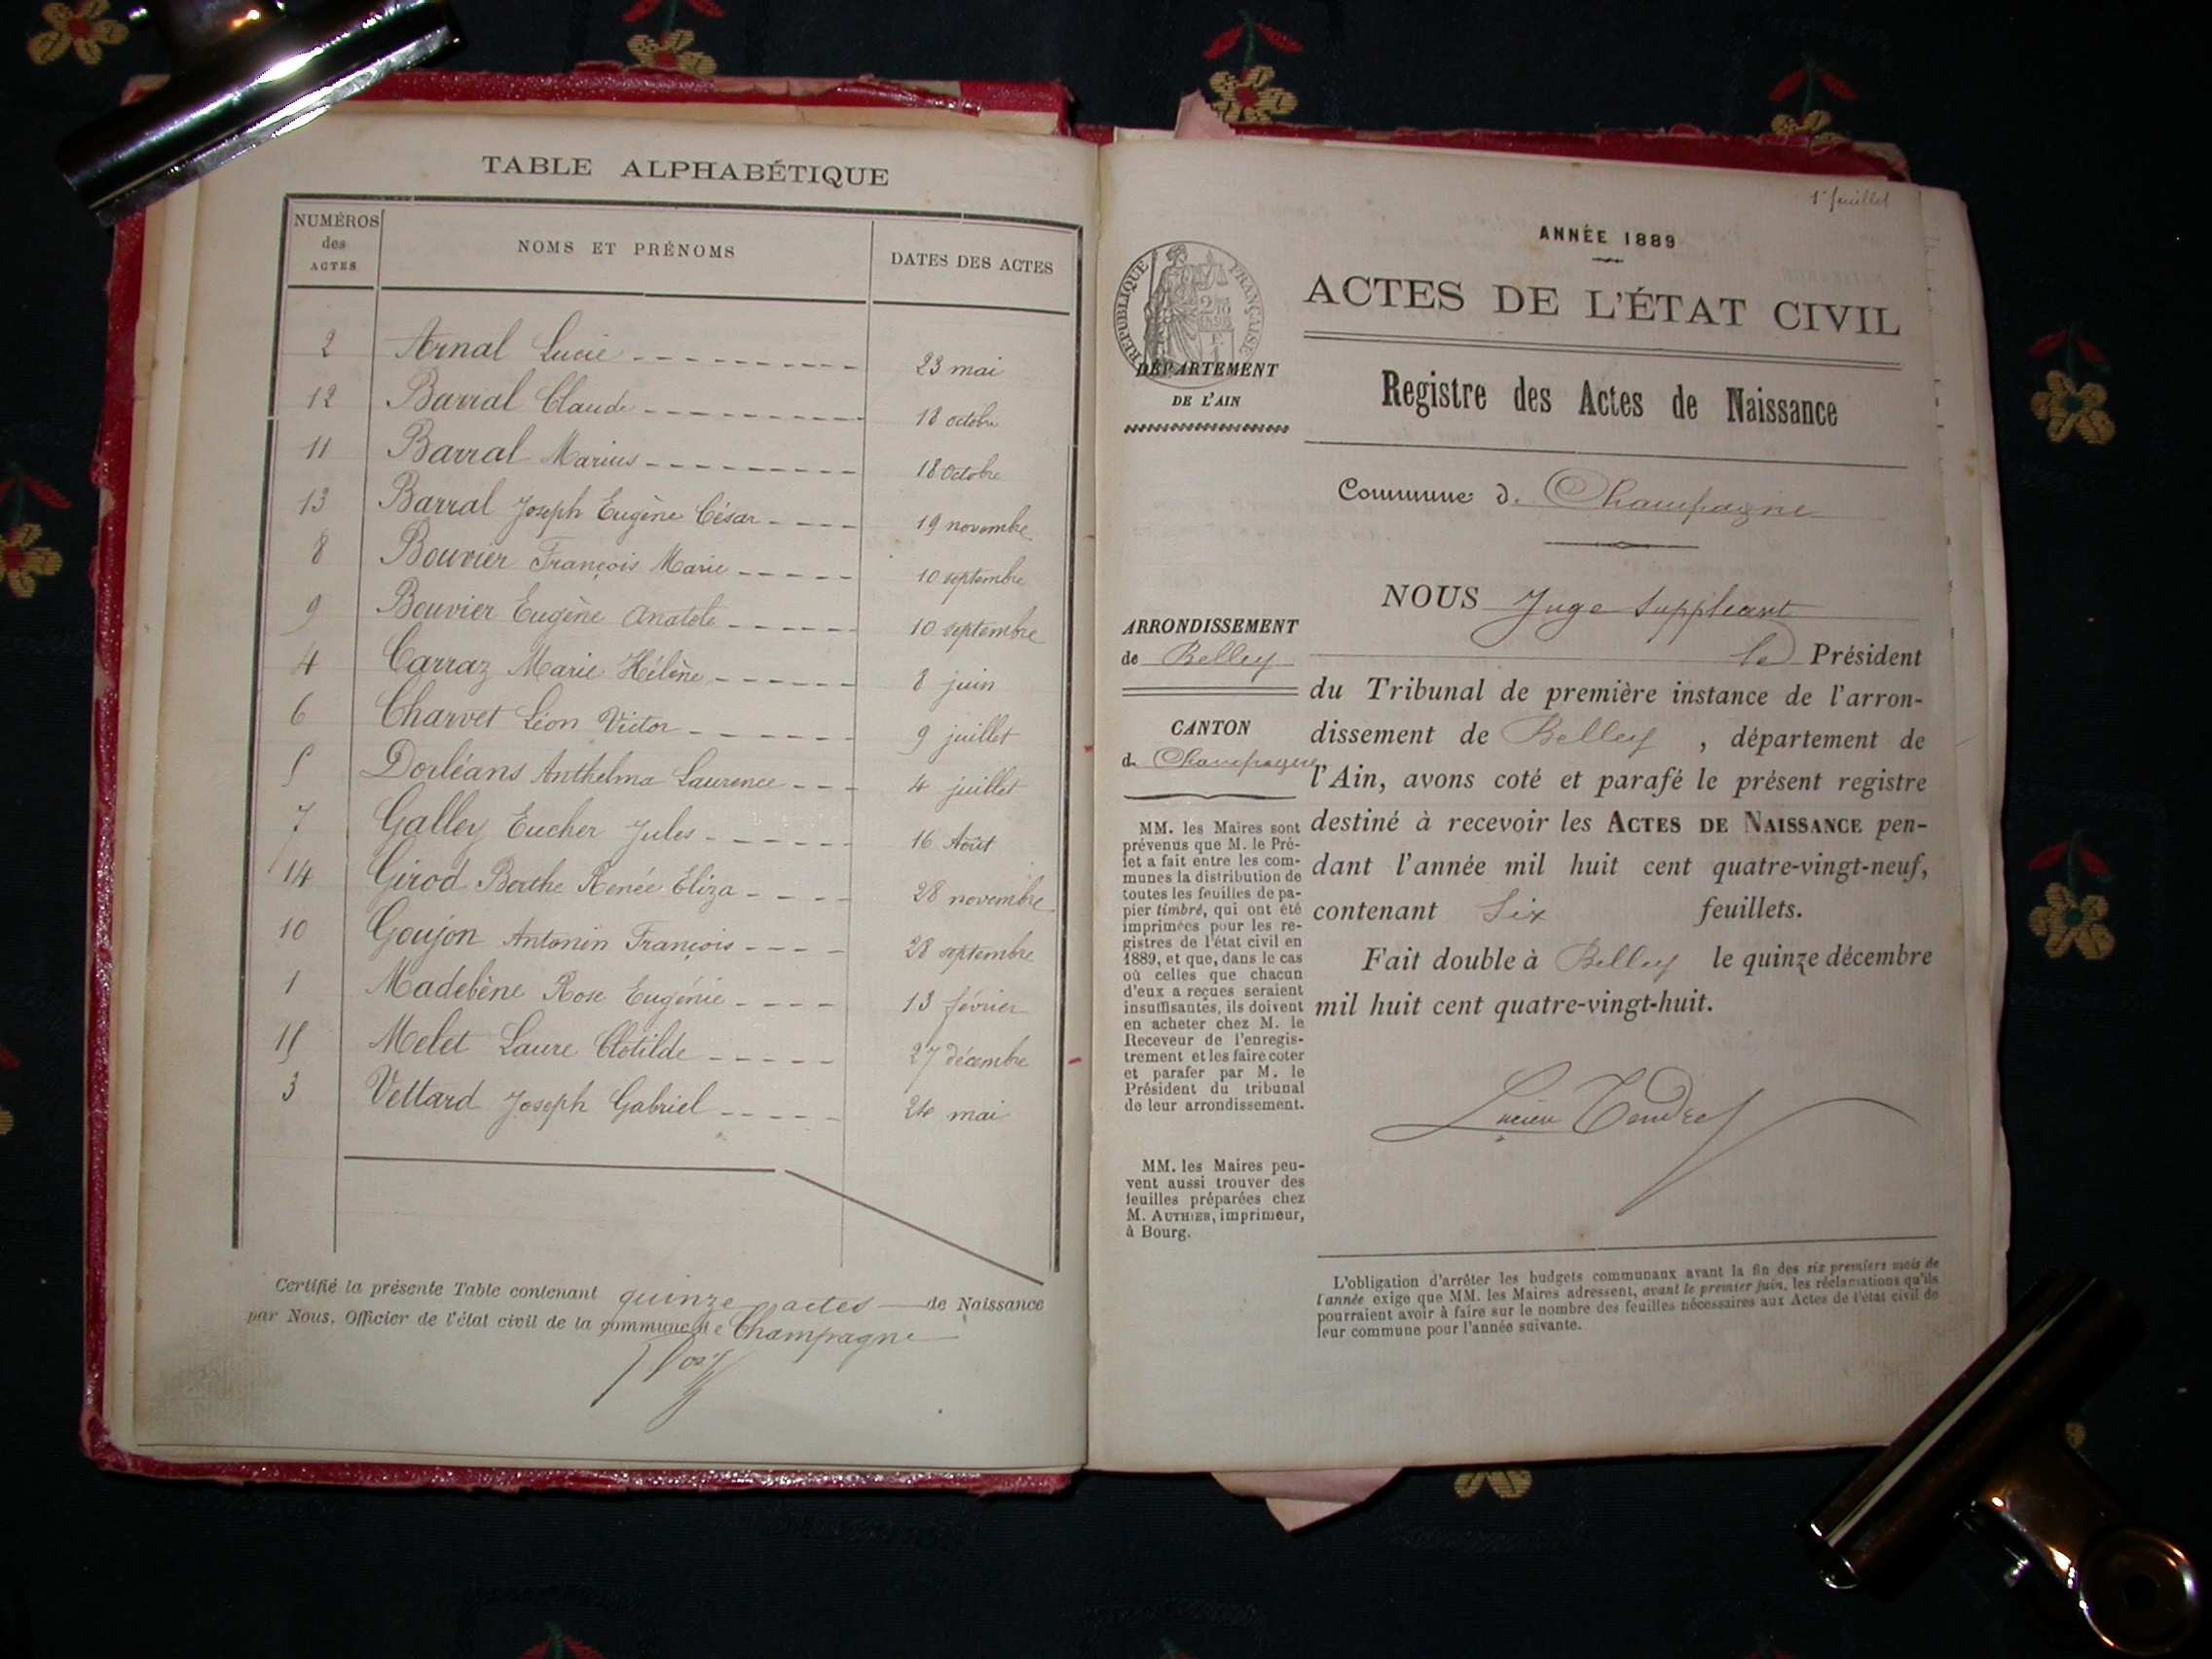 TABLE ALPHABÉTIQUE
NUMÉROS des ACTES
NOMS ET PRÉNOMS
DATES DES ACTES
2 Arnal Lucie 23 mai
12 Barral Claude 18 octobre
11 Barral Marius 18 Octobre
13 Barral Joseph Eugène César 19 novembre
8 Bouvier François Marie 10 septembre
9 Bouvier Eugène Anatole 10 septembre
4 Carraz Marie Hélène 8 juin
6 Charvet Léon Victor 9 juillet
5 Dorléans Anthelma Laurence 4 juillet
7 Galley Eucher Jules 16 Août
14 Girod Berthe Renée Eliza 28 novembre
10 Goujon Antonin François 28 septembre
1 Madebène Rose Eugénie 13 février
15 Melet Laure Clotilde 27 décembre
3 Vettard Joseph Gabriel 24 mai
Certifié la présente Table contenant quinze actes de Naissance
par Nous, Officier de l'état civil de la commune de Champagne
1er feuillet
ANNÉE 1889
ACTES DE L'ÉTAT CIVIL
RÉPUBLIQUE FRANÇAISE
DÉPARTEMENT
DE L'AIN
Registre des Actes de Naissance
Commune de Champagne
ARRONDISSEMENT
de Belley
CANTON
de Champagne
MM. les Maires sont
prévenus que M. le Pré-
fet a fait entre les com-
munes la distribution de
toutes les feuilles de pa-
pier timbré, qui ont été
imprimées pour les re-
gistres de l'état civil en
1889, et que, dans le cas
où celles que chacun
d'eux a reçues seraient
insuffisantes, ils doivent
en acheter chez M. le
Receveur de l'enregis-
trement et les faire coter
et parafer par M. le
Président du tribunal
de leur arrondissement.
MM. les Maires peu-
vent aussi trouver des
feuilles préparées chez
M. AUTHIER, imprimeur,
à Bourg.
NOUS Juge Suppléant
le Président
du Tribunal de première instance de l'arron-
dissement de Belley, département de
l'Ain, avons coté et parafé le présent registre
destiné à recevoir les ACTES DE NAISSANCE pen-
dant l'année mil huit cent quatre-vingt-neuf,
contenant Six feuillets.
Fait double à Belley le quinze décembre
mil huit cent quatre-vingt-huit.
Lucien Tendret
L'obligation d'arrêter les budgets communaux avant la fin des six premiers mois de
l'année exige que MM. les Maires adressent, avant le premier juin, les réclamations qu'ils
pourraient avoir à faire sur le nombre des feuilles nécessaires aux Actes de l'état civil de
leur commune pour l'année suivante.